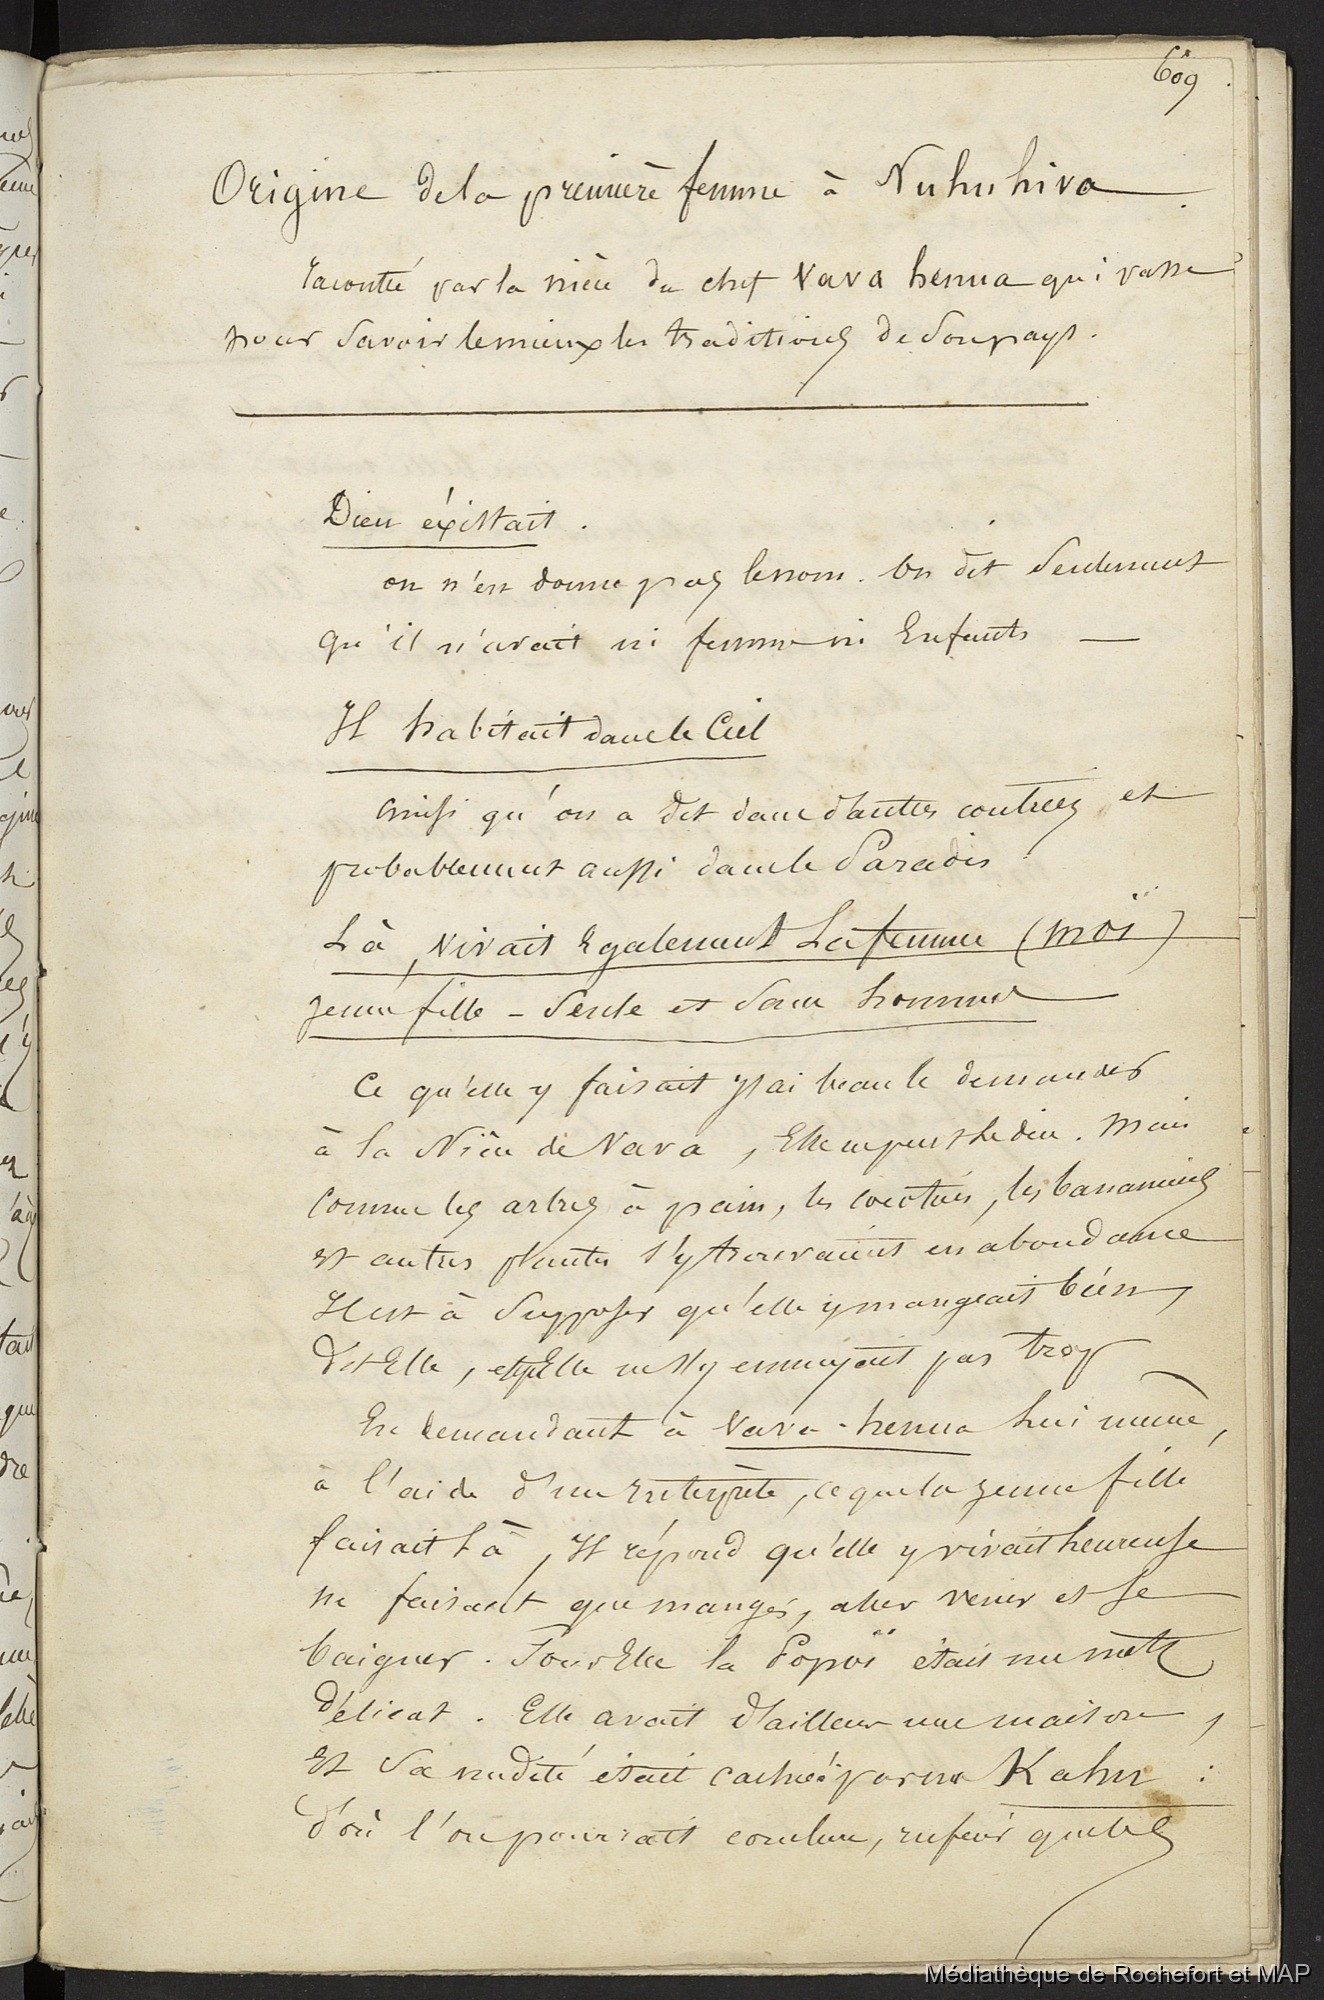 609
Origine de la première femme à Nuhuhiva
raconté par la nièce du chef Vava henua qui passe
pour savoir le mieux les traditions de son pays.
Dieu éxistait.
on n'en donne pas le nom. On dit Seulement
qu'il n'avait ni femme ni Enfants —
Il habitait dans le Ciel
ainsi qu'on a dit dans d'autres contrées et
probablement aussi dans le Paradis
Là, vivait Egalement La femme (moï)
jeune fille - Seule et Sans hommes
Ce qu'elle y faisait J'ai beau le demander
à la Nièce de Vava, Elle ne peut le dire. Mais
Comme les arbres à pain, les cocotiers, les bananiers
et autres plantes s'y trouvaient en abondance
Il est à Supposer qu'elle y mangeait bien,
dit Elle, et qu'Elle ne s'y ennuyait pas trop
En demandant à Vava-henua lui même,
à l'aide d'un Enterprète, ce que la jeune fille
faisait Là, Il répond qu'elle y vivait heureuse
ne faisant que manger, aller venir et se
baigner. Pour Elle la Popoï était un mets
délicat. Elle avait d'ailleurs une maison,
Et Sa nudité était cachée par un Kahu:
d'où l'on pourrait conclure, que les
Médiathèque de Rochefort et MAP